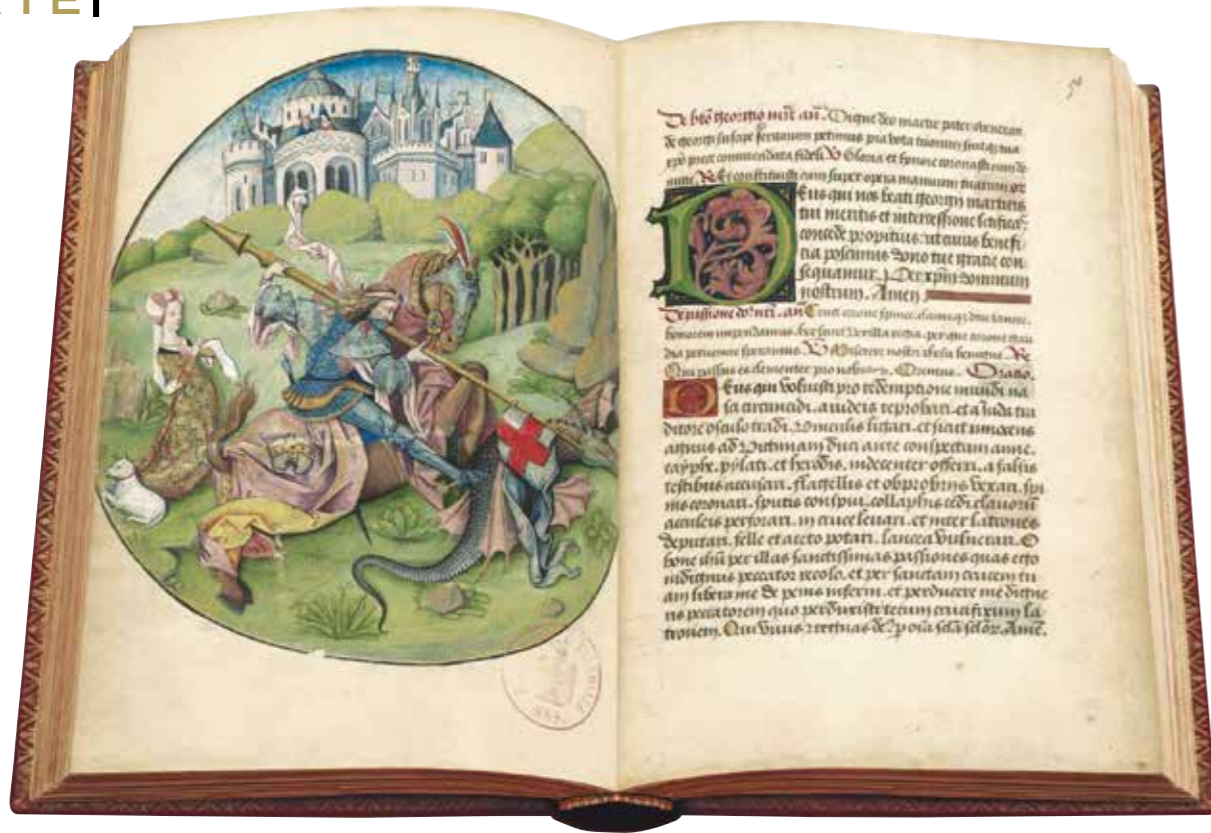 TE
De bto georgio mr̄e an̄. Digne deo martir
de georgi suscipe petimus pia vota tuorum
xpo prece commendata fideli V Gloria et honore coronasti eum do
mine. R Et constituisti eum super opera manuum tuarum or
Deus qui nos beati georgii martiris
tui meritis et intercessione letificas
concede propitius: ut cuius benefi
tia poscimus dono tue gratie con
sequamur. Per xp̄m dominum
nostrum. Amen
De passione dōi nr̄i. an̄
per que
dia V Miserere nostri ihesu benigne. R
Qui passus es clementer pro nobis. Oremus. Oratio.
Deus qui voluisti pro redemptione mundi na
sci circuncidi. a iudeis reprobari. et a iuda tra
ditore osculo tradi. vinculis ligari. et sicut innocens
agnus ad victimam duci ante conspectum anne.
cayphe. pylati. et herodis. indecenter offerri. a falsis
testibus accusari. flagellis et obprobriis vexari. spi
nis coronari. sputis conspui. collaphis cedi. clavorū
aculeis perforari. in cruce levari. et inter latrones
deputari. felle et aceto potari. lancea vulnerari. O
bone ihū per illas sanctissimas passiones quas ego
indignus peccator recolo. et per sanctam crucem tu
am libera me de penis inferni. et perducere me digne
ris peccatorem quo perduxisti tecum crucifixum la
tronem. Qui vivis
MSS.